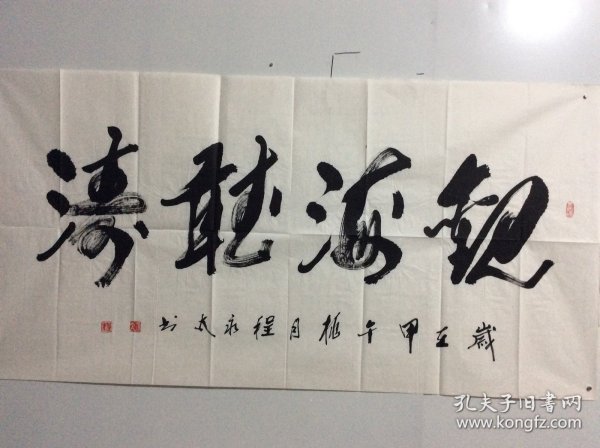 观海聽涛
歲在甲午桃月程永太书
孔夫子旧书网
www.kongfz.com